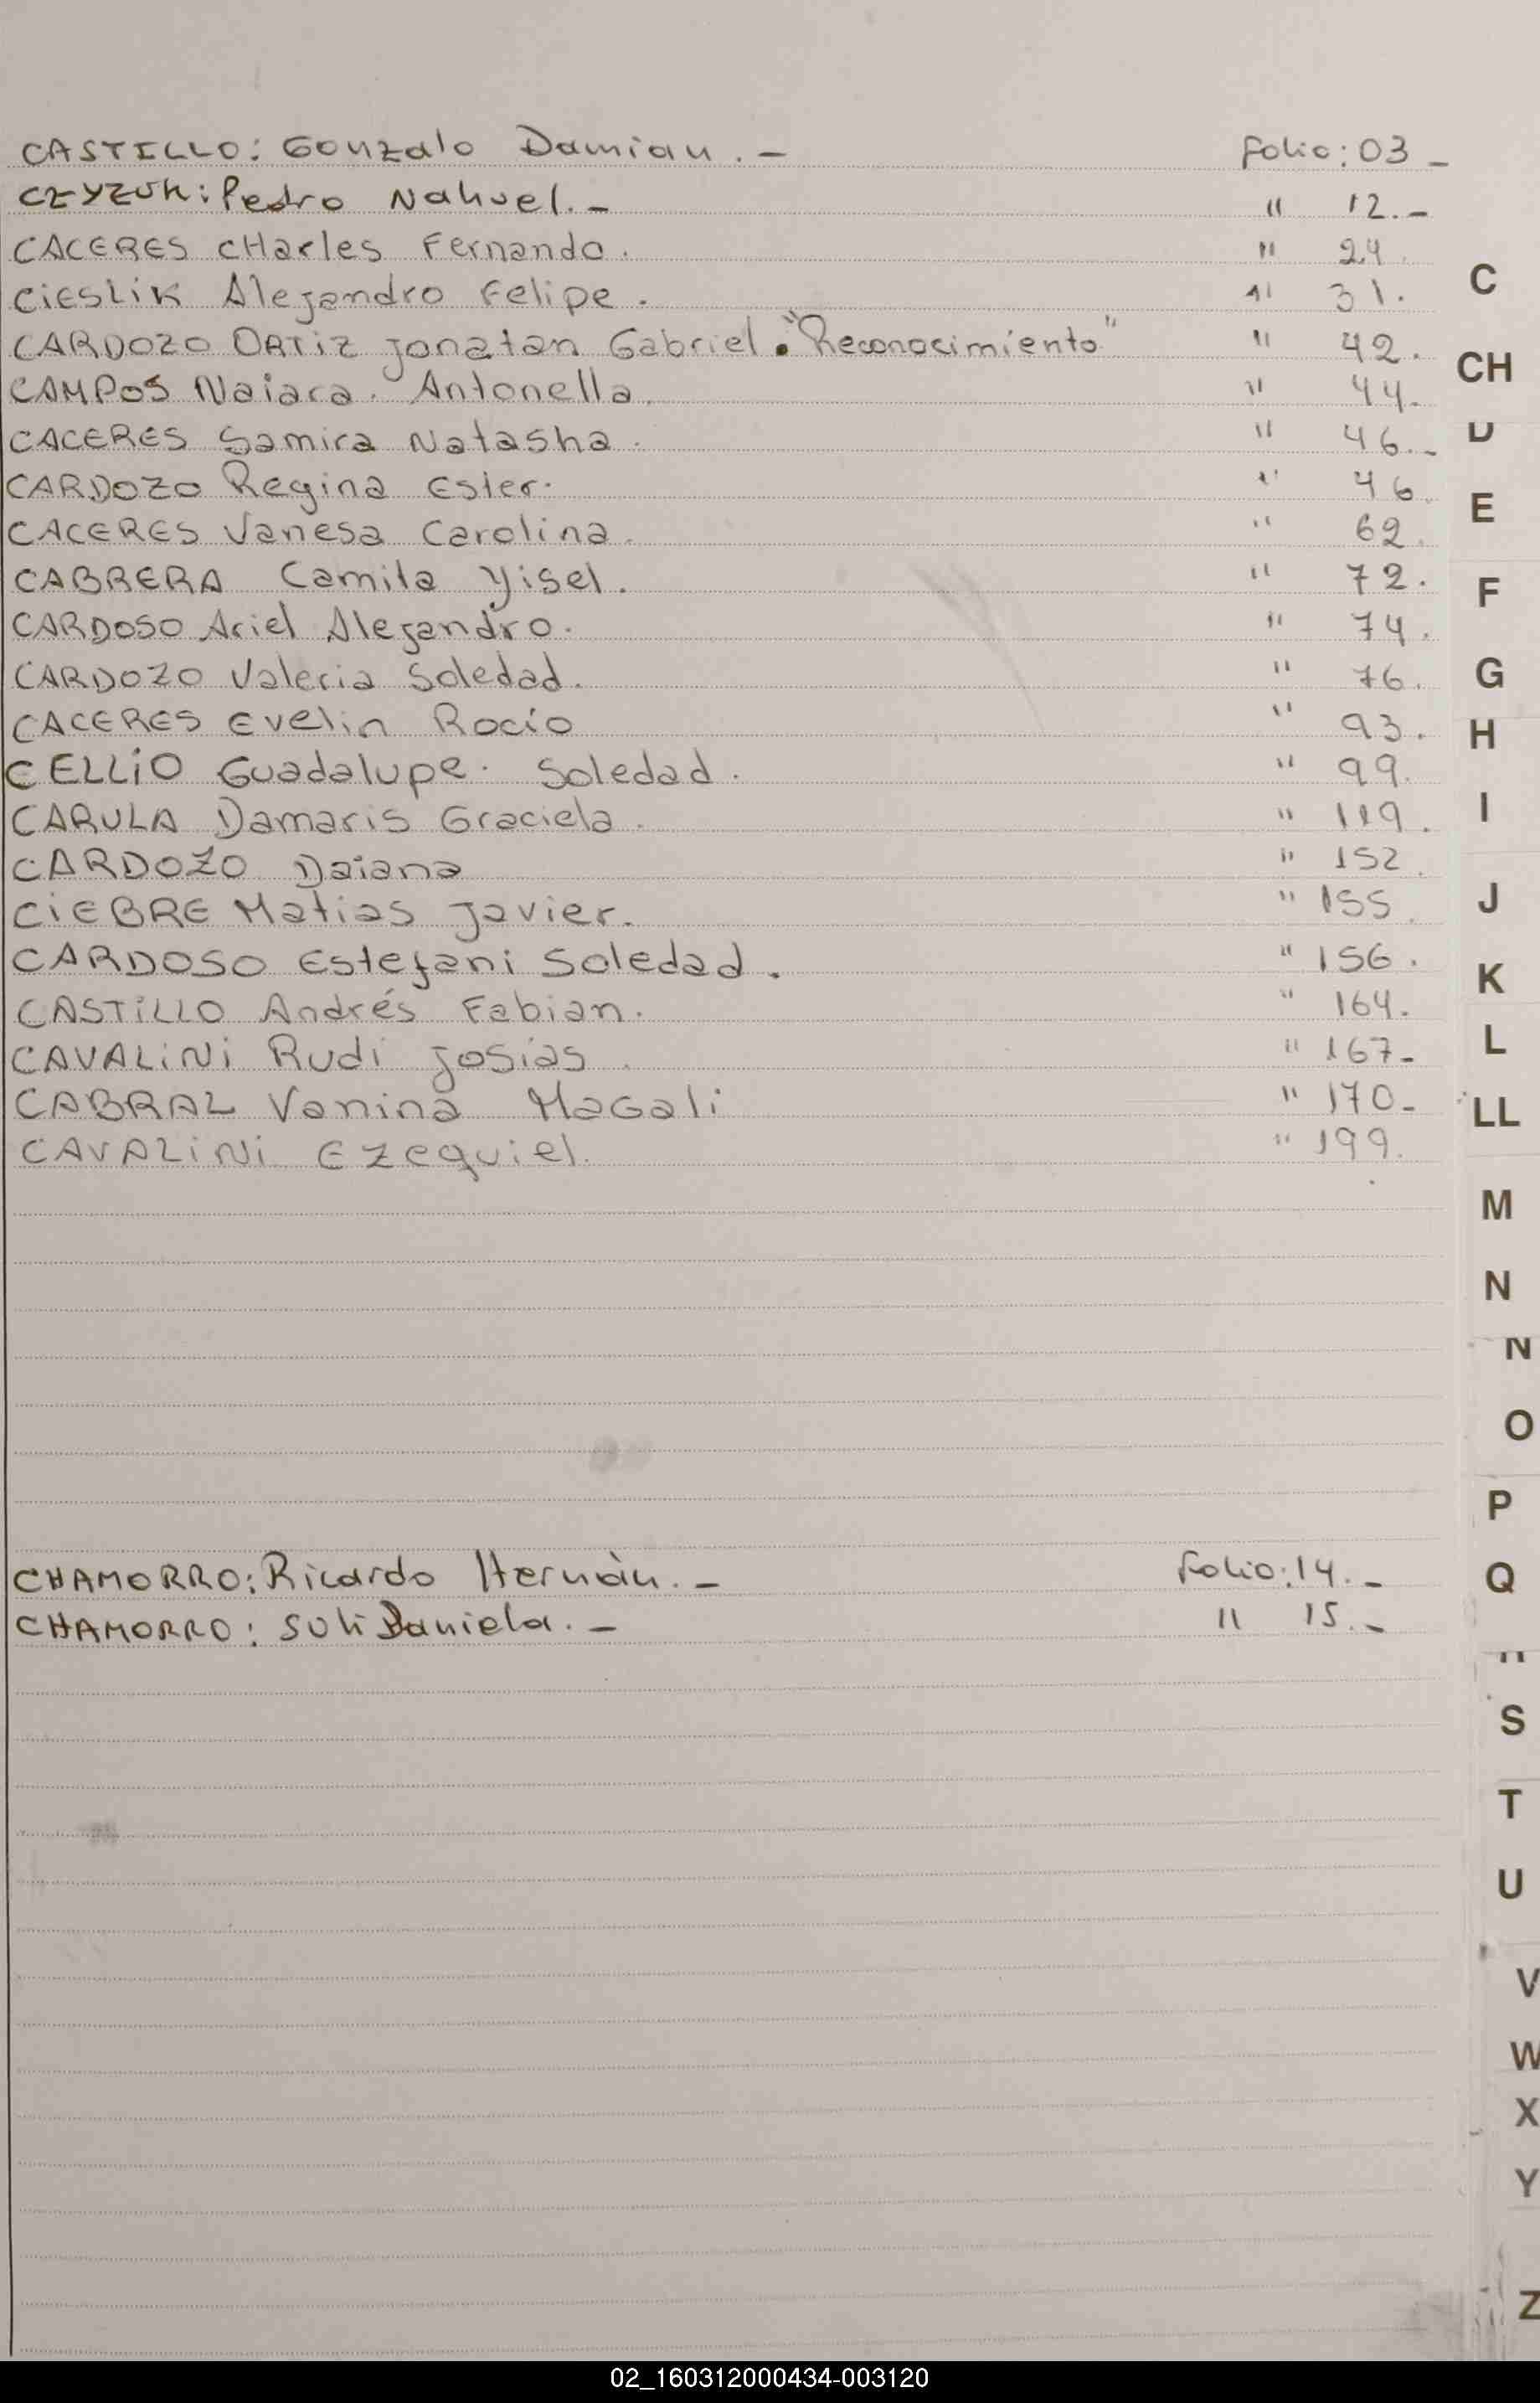 CASTILLO: Gonzalo Damian. - Folio: 03 -
CZYZUK: Pedro Nahuel. - " 12. -
CACERES CHarles Fernando. " 24.
CiESLiK Alejandro Felipe. " 31.
CARDOZO ORTiZ Jonatan Gabriel. "Reconocimiento" " 42.
CAMPOS Naiara. Antonella. " 44.
CACERES Samira Natasha. " 46. -
CARDOZO Regina Ester. " 46.
CACERES Vanesa Carolina. " 62.
CABRERA Camila Yisel. " 72.
CARDOSO Ariel Alejandro. " 74.
CARDOZO Valeria Soledad. " 76.
CACERES Evelin Rocío " 93.
CELLiO Guadalupe. Soledad. " 99.
CARULA Damaris Graciela. " 119.
CARDOZO Daiana " 152.
CiEBRE Matias Javier. " 155.
CARDOSO Estefani Soledad. " 156.
CASTiLLO Andrés Fabian. " 164.
CAVALiNi Rudi Josías. " 167-
CABRAL Vanina MaGali " 170-
CAVALiNi Ezequiel. " 199.
CHAMORRO: Ricardo Hernàn. - Folio: 14. -
CHAMORRO: Suli Daniela. - " 15. -
C
CH
D
E
F
G
H
I
J
K
L
LL
M
N
N
O
P
Q
S
T
U
V
W
X
Y
Z
02_160312000434-003120